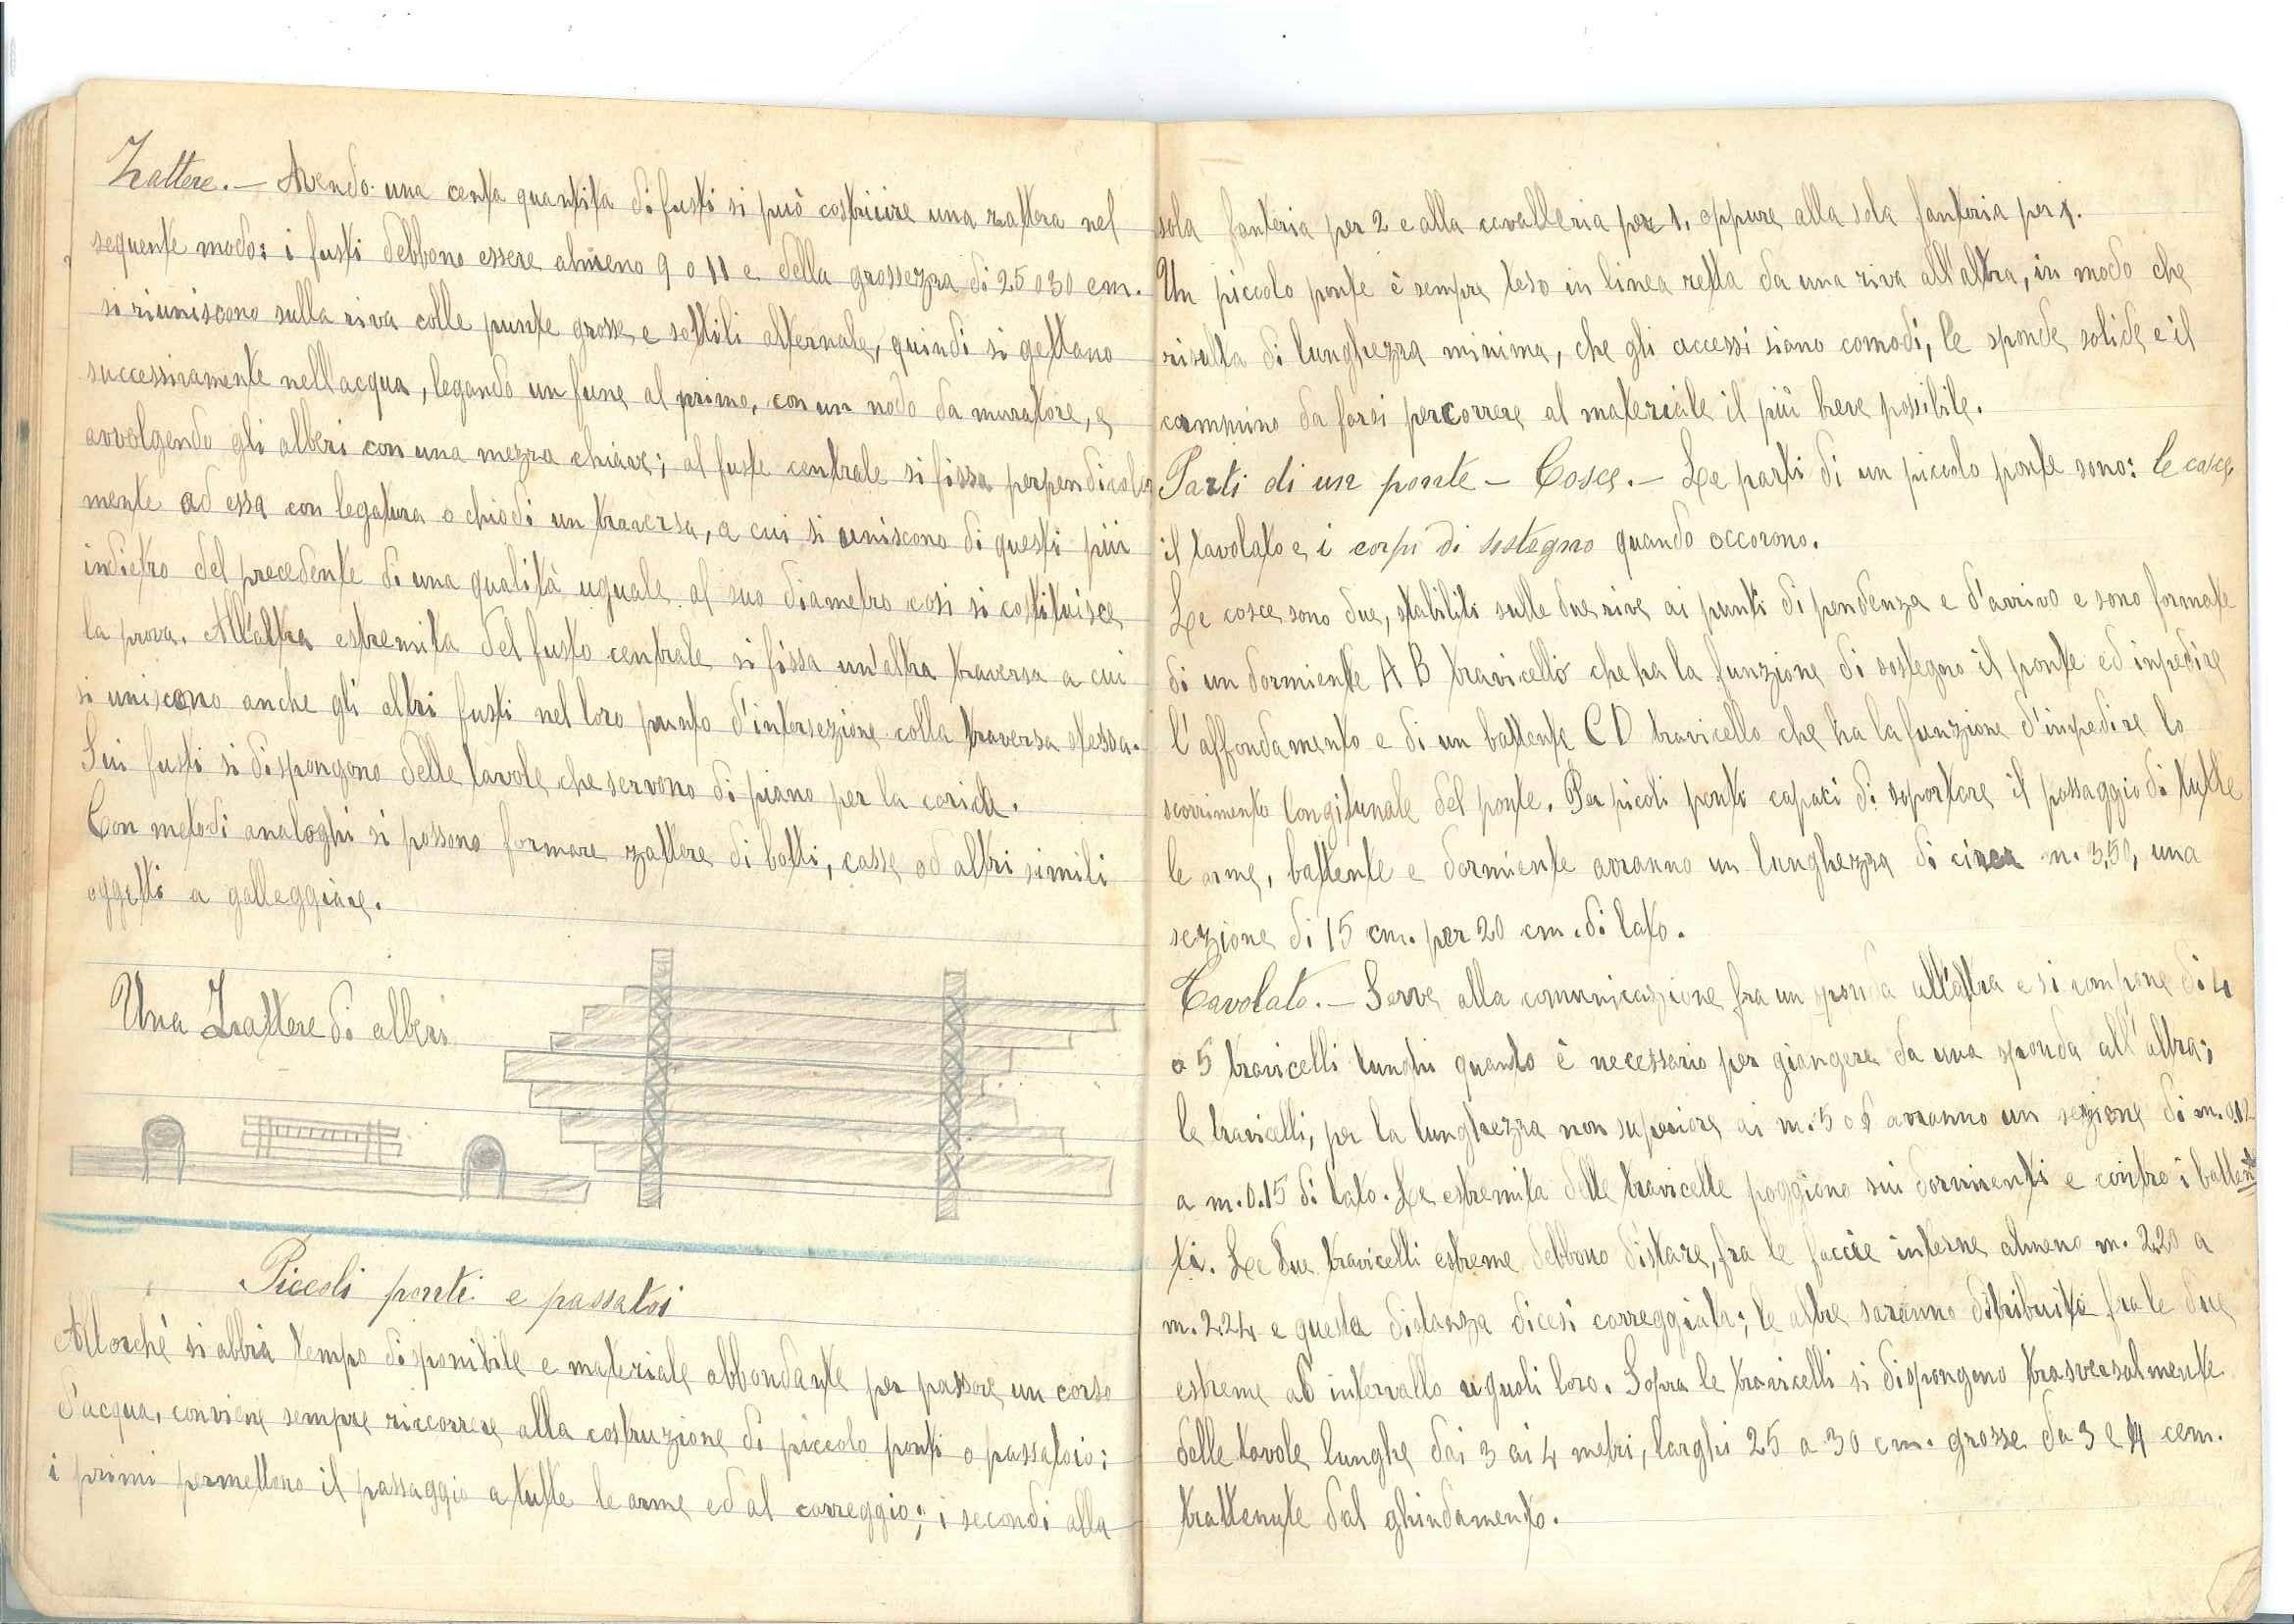 Zattere. — Avendo una certa quantita di fusti si può costruire una zattera nel
seguente modo: i fusti debbono essere almeno 9 o 11 e della grossezza di 25 o 30 cm.
si riuniscono sulla riva colle punte grosse e sottili alternate, quindi si gettano
successivamente nell'acqua, legando un fune al primo, con un nodo da muratore, e
avvolgendo gli alberi con una mezza chiave; al fuste centrale si fissa perpendicolar
mente ad essa con legatura o chiodi un traversa, a cui si uniscono di questi più
indietro del precedente di una qualità uguale al suo diametro così si costituisce
la prova. All'altra estremita del fusto centrale si fissa un'altra traversa a cui
si uniscono anche gli altri fusti nel loro punto d'intersezione colla traversa stessa.
Sui fusti si dispongono delle tavole che servono di piano per la carich.
Con metodi analoghi si possono formare zattere di botti, casse od altri simili
oggetti a galleggiare.
Una Zattere di alberi
Piccoli ponti e passatoi
Allorché si abbia tempo disponibile e materiale abbondante per passare un corso
d'acqua, conviene sempre riccorrere alla costruzione di piccolo ponti o passatoio:
i primi permettono il passaggio a tutte le arme ed al carreggio; i secondi alla
sola fanteria per 2 e alla cavalleria per 1, oppure alla sola fanteria per 1.
Un piccolo ponte è sempre teso in linea retta da una riva all'altra, in modo che
risulta di lunghezza minima, che gli accessi siano comodi, le sponde solide e il
cammino da farsi percorrere al materiale il più breve possibile.
Parti di un ponte — Cosce. — Le parti di un piccolo ponte sono: le cosce,
il tavolato e i corpi di sostegno quando occorono.
Le cosce sono due, stabiliti sulle due rive ai punti di pendenza e d'arrivo e sono formate
di un dormiente A B travicello che ha la funzione di sostegno il ponte ed impedire
l'affondamento e di un battente C D travicello che ha la funzione d'impedire lo
scorrimento longitunale del ponte. Per picoli ponti capaci di soportare il passaggio di tutte
le arme, battente e dormiente avranno un lunghezza di circa m. 3,50, una
sezione di 15 cm. per 20 cm. di lato.
Tavolato. — Serve alla comunicazione fra un sponda all'altra e si compone di 4
o 5 travicelli lunghi quanto è necessario per giungere da una sponda all'altra;
le travicelli, per la lunghezza non superiore ai m. 5 o 6 avranno un sezione di m. 0.12
a m. 0.15 di lato. Le estremita delle travicelle poggiono sui dormienti e contro i batten
ti. Le due travicelli estreme debbono distare, fra le faccie interne almeno m. 2.20 a
m. 2.24 e questa distanza dicesi carreggiata; le altre saranno distribuite fra le due
estreme ad intervallo uguali loro. Sopra le travicelli si dispongono trasversalmente
delle tavole lunghe dai 3 ai 4 metri, larghi 25 a 30 cm. grosse da 3 e 4 cem.
trattenute dal ghindamento.